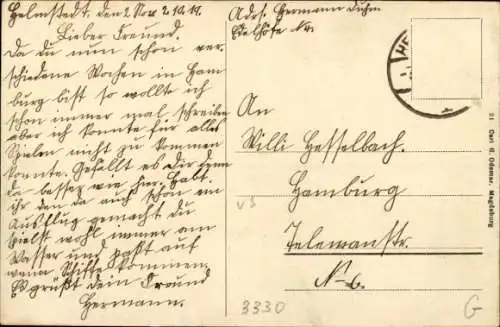 Helmstedt, den 2 Nov. 1919.
Lieber Freund.
Da du nun schon ver
schiedene Wochen in Ham
burg bist so wollte ich
schon immer mal schreiben
aber ich konnte für alles
Spielen nicht zu kommen
konnte. Gefällt es dir denn
da besser wie hier. Habt.
ihr den da auch schon ein
Ausflug gemacht du
spielst wohl immer am
Wasser und paßt auf
wenn Schiffe kommen.
Es grüßt dein Freund
Hermann.
Adrs. Hermann
An
Willi Hesselbach.
Hamburg
Telemannstr.
No 6.
Carl G. Odemar, Magdeburg
3330
G